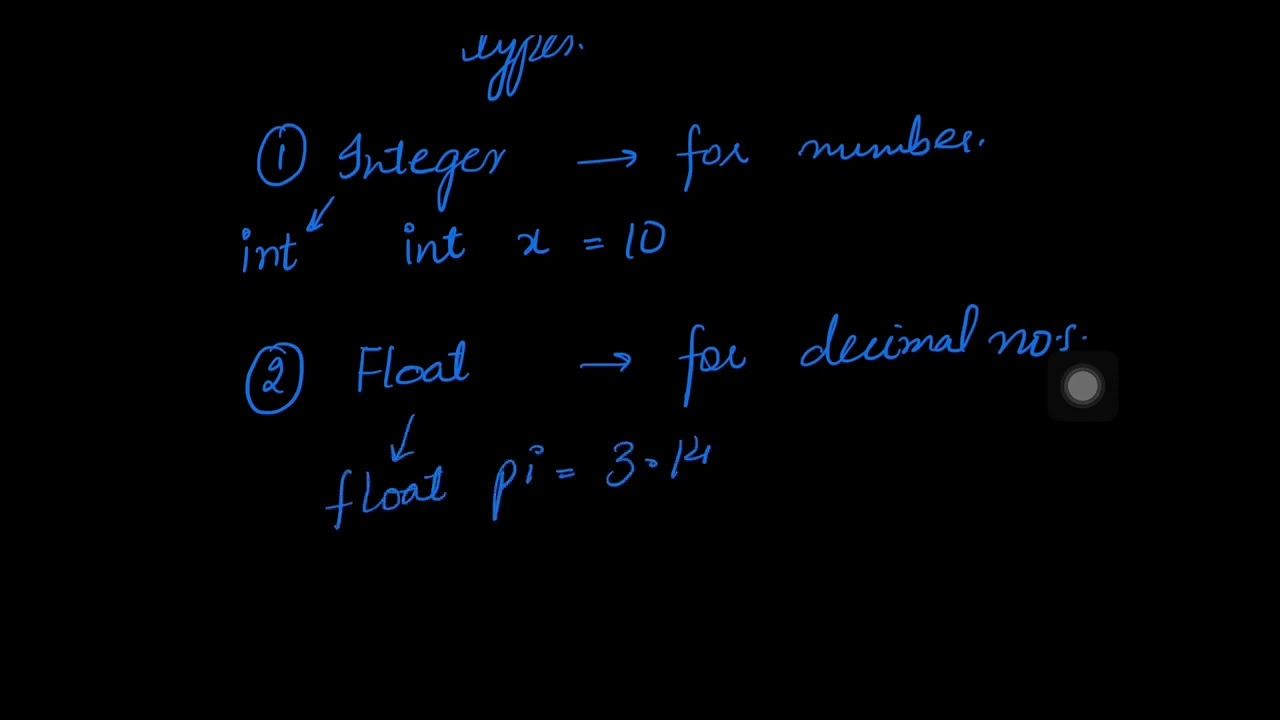 types.
① Integer → for number.
int int x = 10
② Float → for decimal no.s.
float pi = 3.14